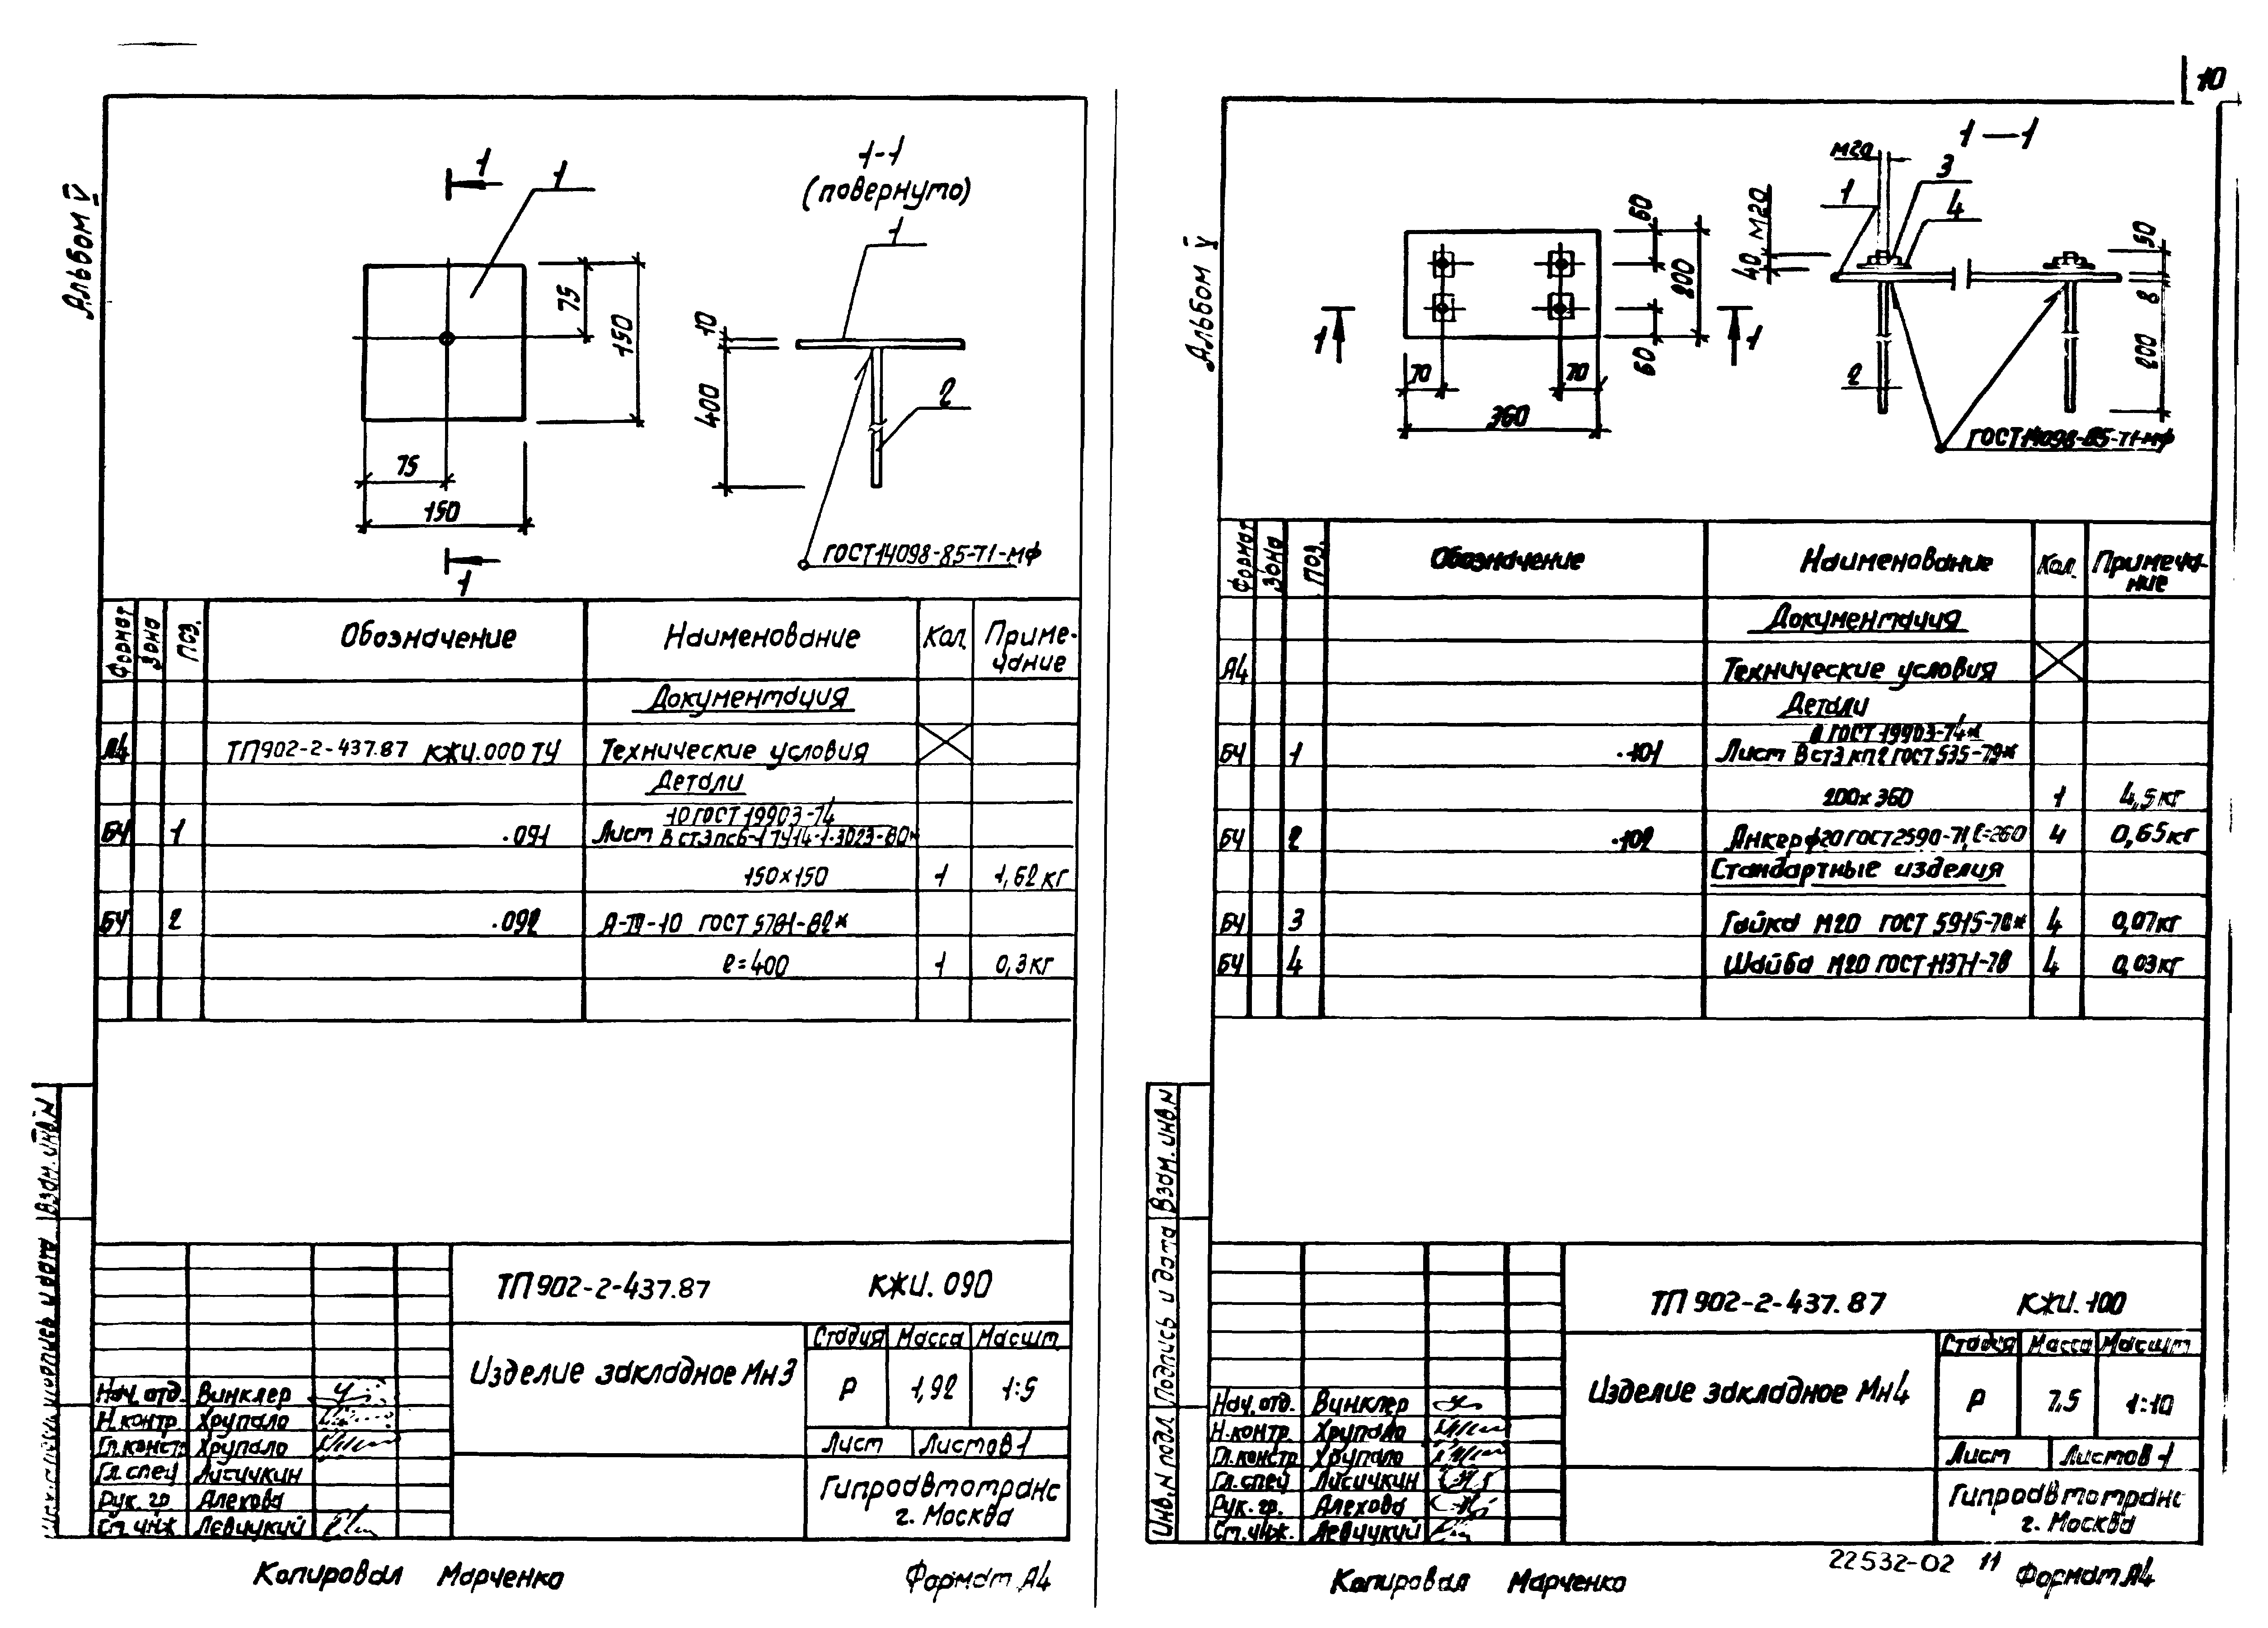 10
Альбом V
1
1
1-1
(повернуто)
1
75
150
10
400
2
75
150
1
ГОСТ14098-85-Т1-мф
Формат
Зона
Поз.
Обозначение
Наименование
Кол.
Приме-
чание
Документация
А4
ТП902-2-437.87 КЖИ.000 ТУ
Технические условия
Детали
10 ГОСТ 19903-74
БЧ 1 .091 Лист ВСт3пс6-1 ТУ14-1-3023-80*
150×150 1 1,62 кг
БЧ 2 .092 А-III-10 ГОСТ 5781-82*
ℓ=400 1 0,3 кг
Взам. инв. N
ТП 902-2-437.87 КЖИ. 090
Изделие закладное Мн3
Стадия Масса Масшт.
Р 1,92 1:5
Лист Листов 1
Гипроавтотранс
г. Москва
Нач. отд. Винклер
Н.контр. Хрупало
Гл.констр Хрупало
Гл.спец Лисичкин
Рук. гр. Алехова
Ст. инж Левицкий
Копировал Марченко
Формат А4
Альбом V
1—1
М20
3
1
4
40, М20
50
8
200
2
60
200
60
1
1
70
70
360
ГОСТ14098-85-Т1-мф
Формат
Зона
Поз.
Обозначение
Наименование
Кол.
Примеча-
ние
Документация
А4 Технические условия
Детали
8 ГОСТ 19903-74*
БЧ 1 .101 Лист ВСт3 кп2 ГОСТ 535-79*
200×360 1 4,5 кг
БЧ 2 .102 Анкер ф20 ГОСТ 2590-71, ℓ=260 4 0,65 кг
Стандартные изделия
БЧ 3 Гайка М20 ГОСТ 5915-70* 4 0,07 кг
БЧ 4 Шайба М20 ГОСТ 11371-78 4 0,03 кг
Взам. инв. N
Подпись и дата
Инв. N подл
ТП 902-2-437.87 КЖИ. 100
Изделие закладное Мн4
Стадия Масса Масшт
Р 7,5 1:10
Лист Листов 1
Гипроавтотранс
г. Москва
Нач. отд. Винклер
Н.контр. Хрупало
Гл.констр Хрупало
Гл.спец Лисичкин
Рук. гр. Алехова
Ст. инж. Левицкий
22532-02 11
Копировал Марченко
Формат А4